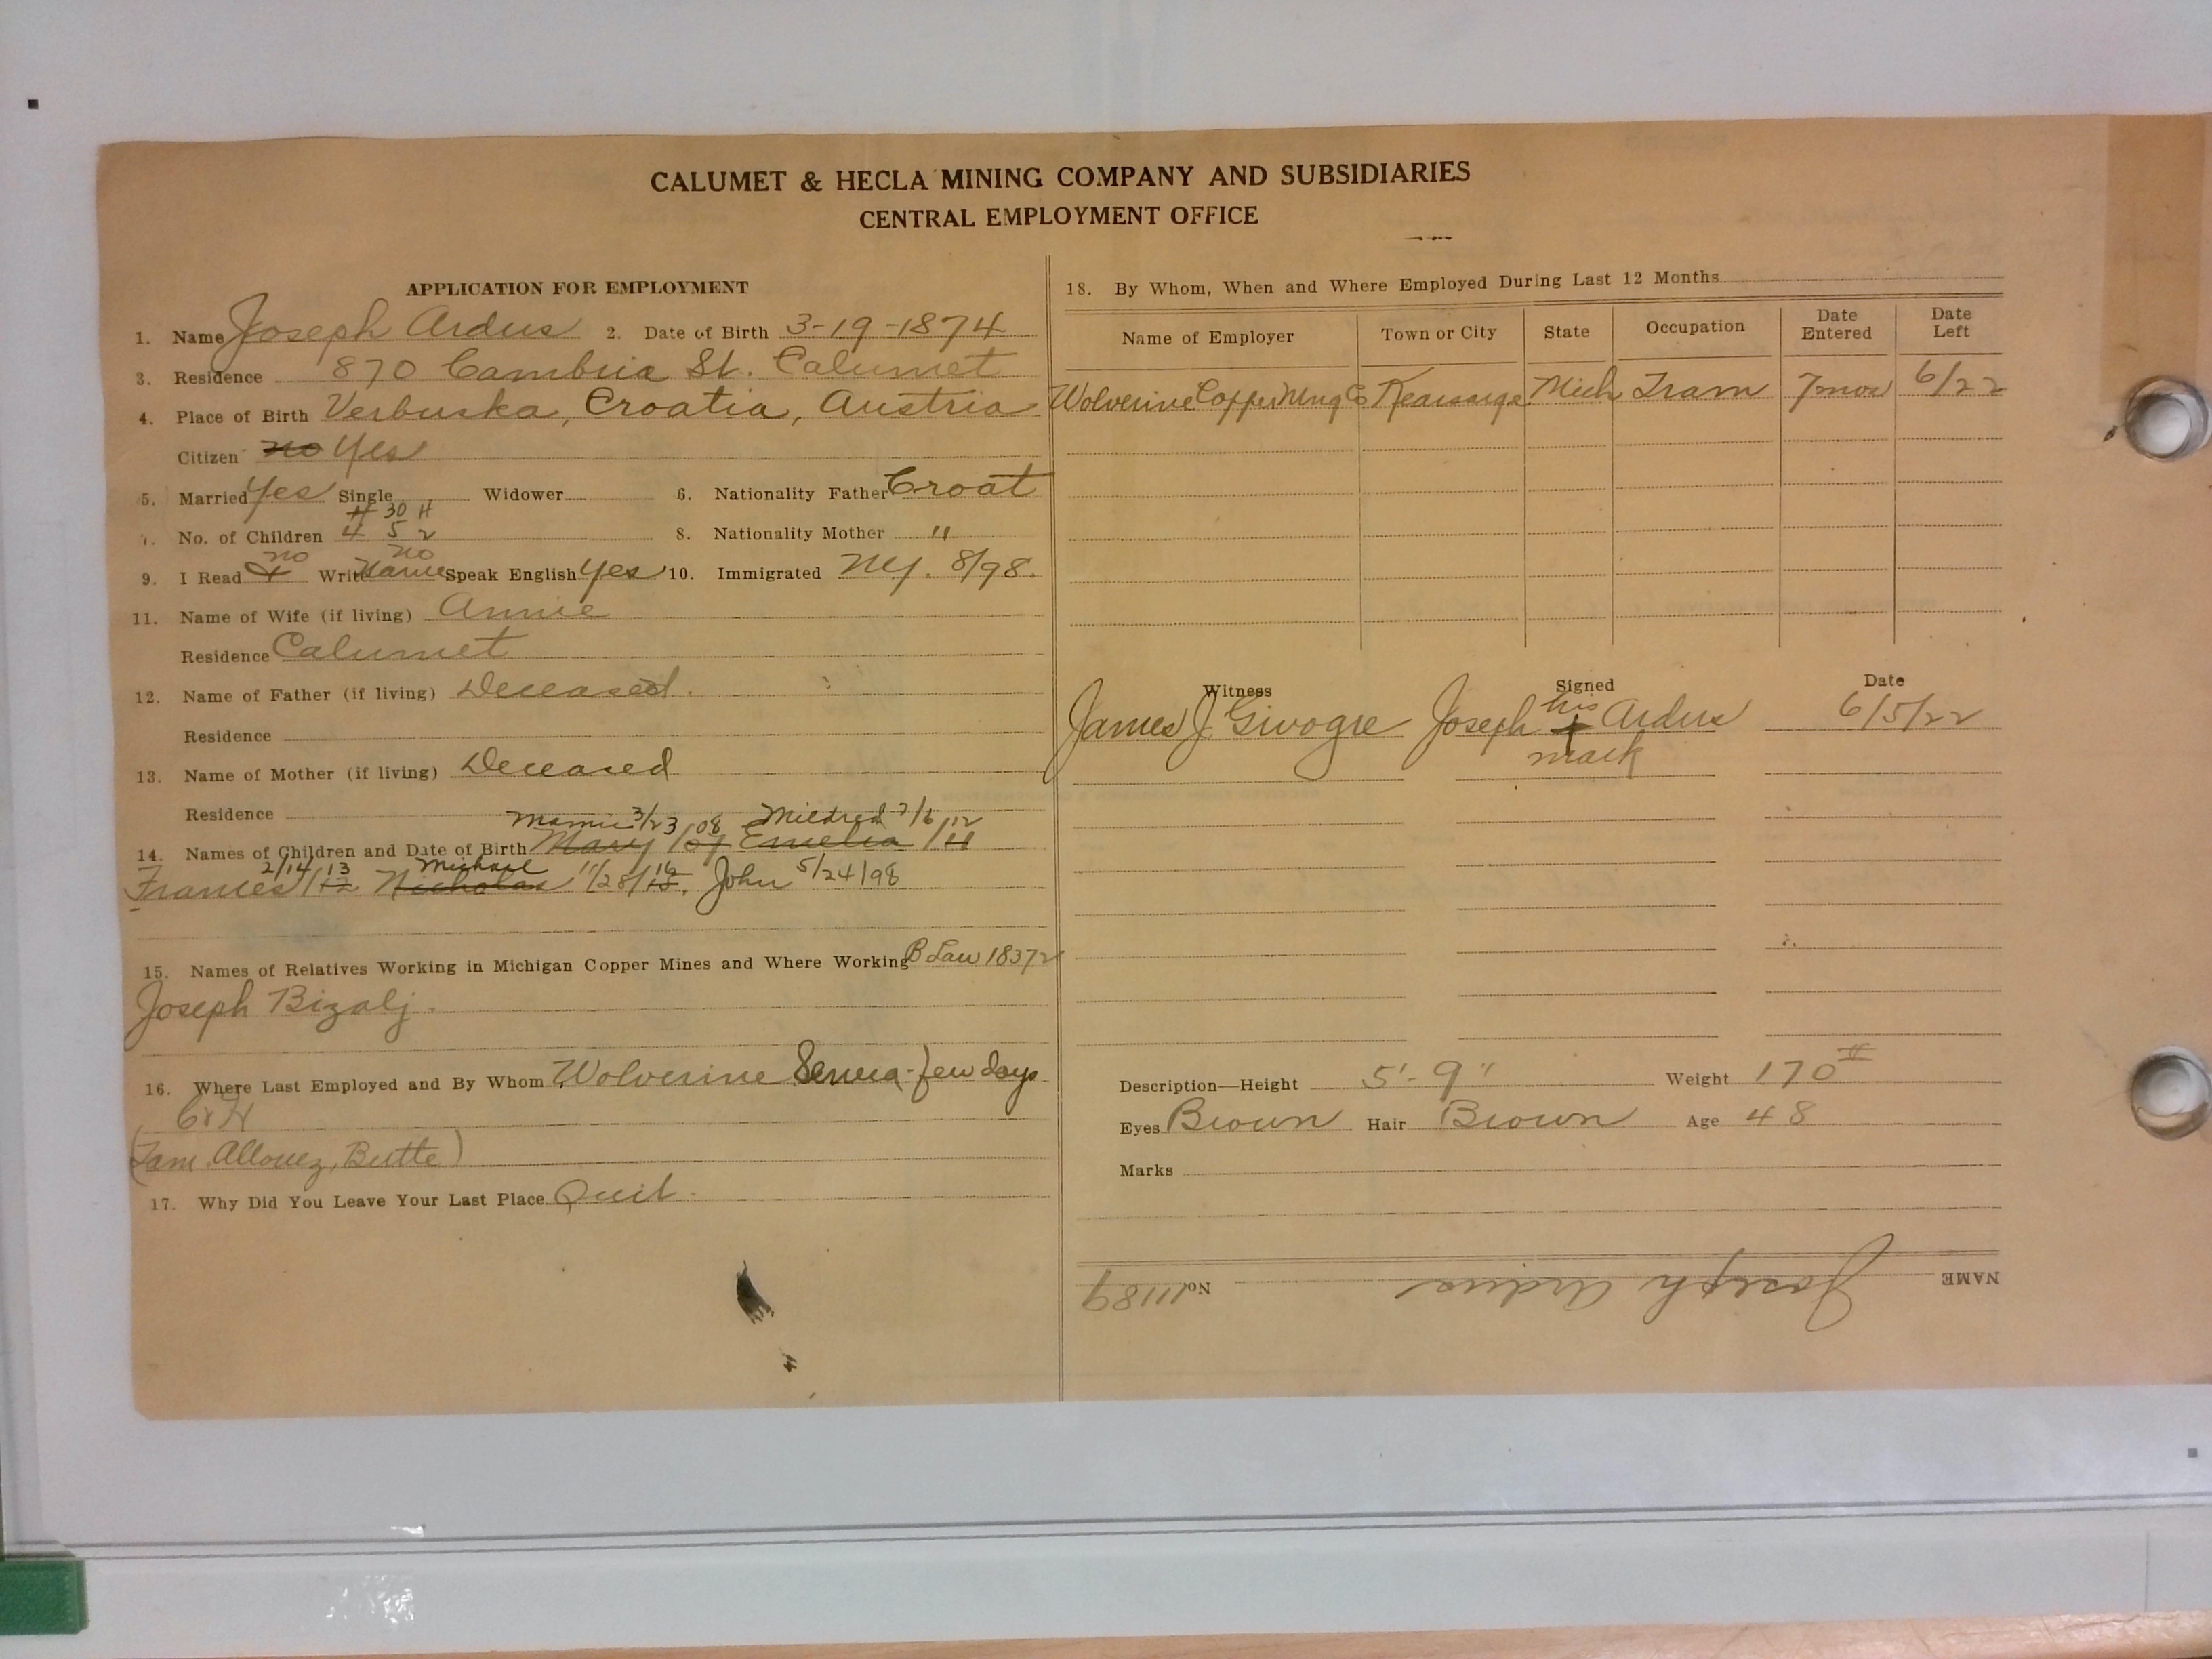 CALUMET & HECLA MINING COMPANY AND SUBSIDIARIES
CENTRAL EMPLOYMENT OFFICE
APPLICATION FOR EMPLOYMENT
1. Name Joseph Ardus 2. Date of Birth 3-19-1874
3. Residence 870 Cambria St. Calumet
4. Place of Birth Verbuska, Croatia, Austria
Citizen no Yes
5. Married Yes Single Widower 6. Nationality Father Croat
4 30 H
7. No. of Children 4 5 2 8. Nationality Mother "
no no
9. I Read Write Name Speak English Yes 10. Immigrated NY. 8/98.
11. Name of Wife (if living) Annie
Residence Calumet
12. Name of Father (if living) Deceased.
Residence
13. Name of Mother (if living) Deceased
Residence
Mamie 3/23 08 Mildred 7/6 12
14. Names of Children and Date of Birth Mary /07 Emelia /11
2/14/13 Michael 16
Frances /12 Nicholas 11/28/15. John 5/24/98
15. Names of Relatives Working in Michigan Copper Mines and Where Working B Law 18372
Joseph Bizalj.
16. Where Last Employed and By Whom Wolverine Seneca - few days
C & H
(Tam, Allouez, Butte)
17. Why Did You Leave Your Last Place Quit.
18. By Whom, When and Where Employed During Last 12 Months
Name of Employer Town or City State Occupation Date Entered Date Left
Wolverine Copper Mng Co Kearsarge Mich Tram 7 mos 6/22
Witness Signed Date
James J. Givogre Joseph his + mark Ardus 6/5/22
Description—Height 5'-9" Weight 170 #
Eyes Brown Hair Brown Age 48
Marks
NAME Joseph Ardus No. 11189